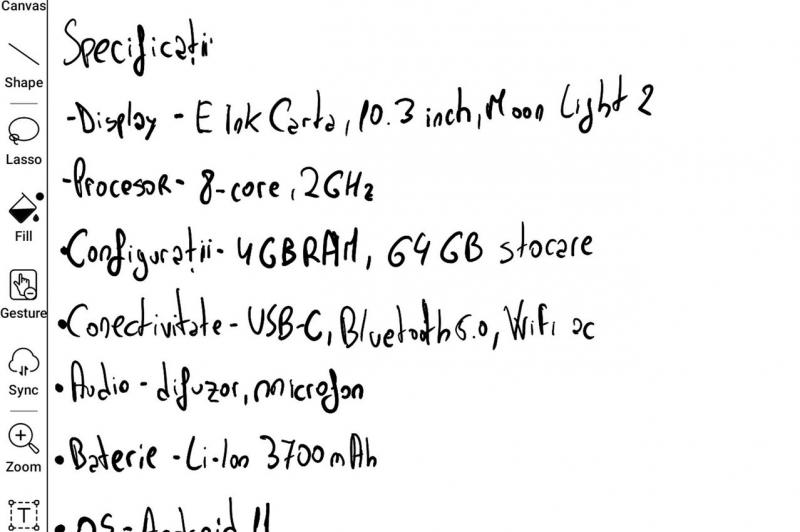 Canvas
Shape
Lasso
Fill
Gesture
Sync
Zoom
T
Specificații
-Display - E Ink Carta, 10.3 inch, Moon Light 2
-Procesor- 8-core, 2GHz
•Configurații- 4GBRAM, 64GB stocare
•Conectivitate - USB-C, Bluetooth 5.0, WiFi ac
•Audio - difuzor, microfon
•Baterie - Li-Ion 3700mAh
•OS - Android 11